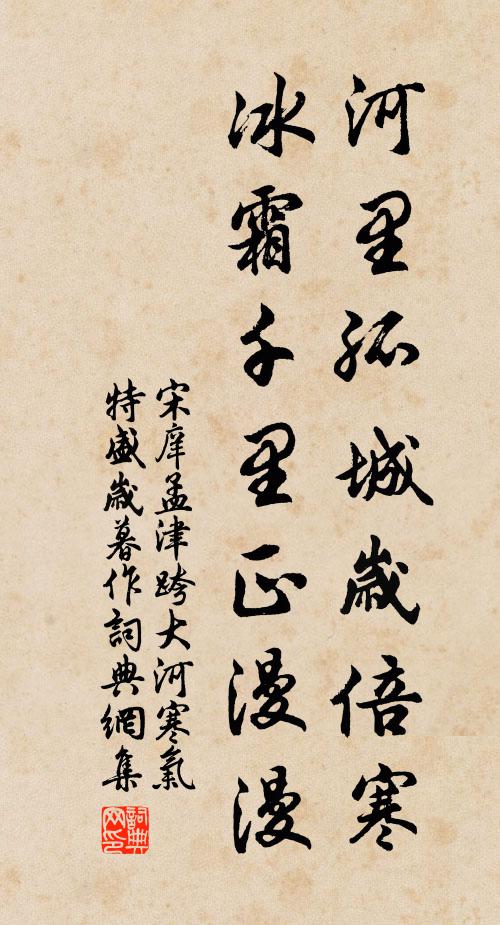 河里孤城歲倍寒
冰霜千里正漫漫
宋庠孟津跨大河寒氣
特盛歲暮作詞典網集
詞典
网印